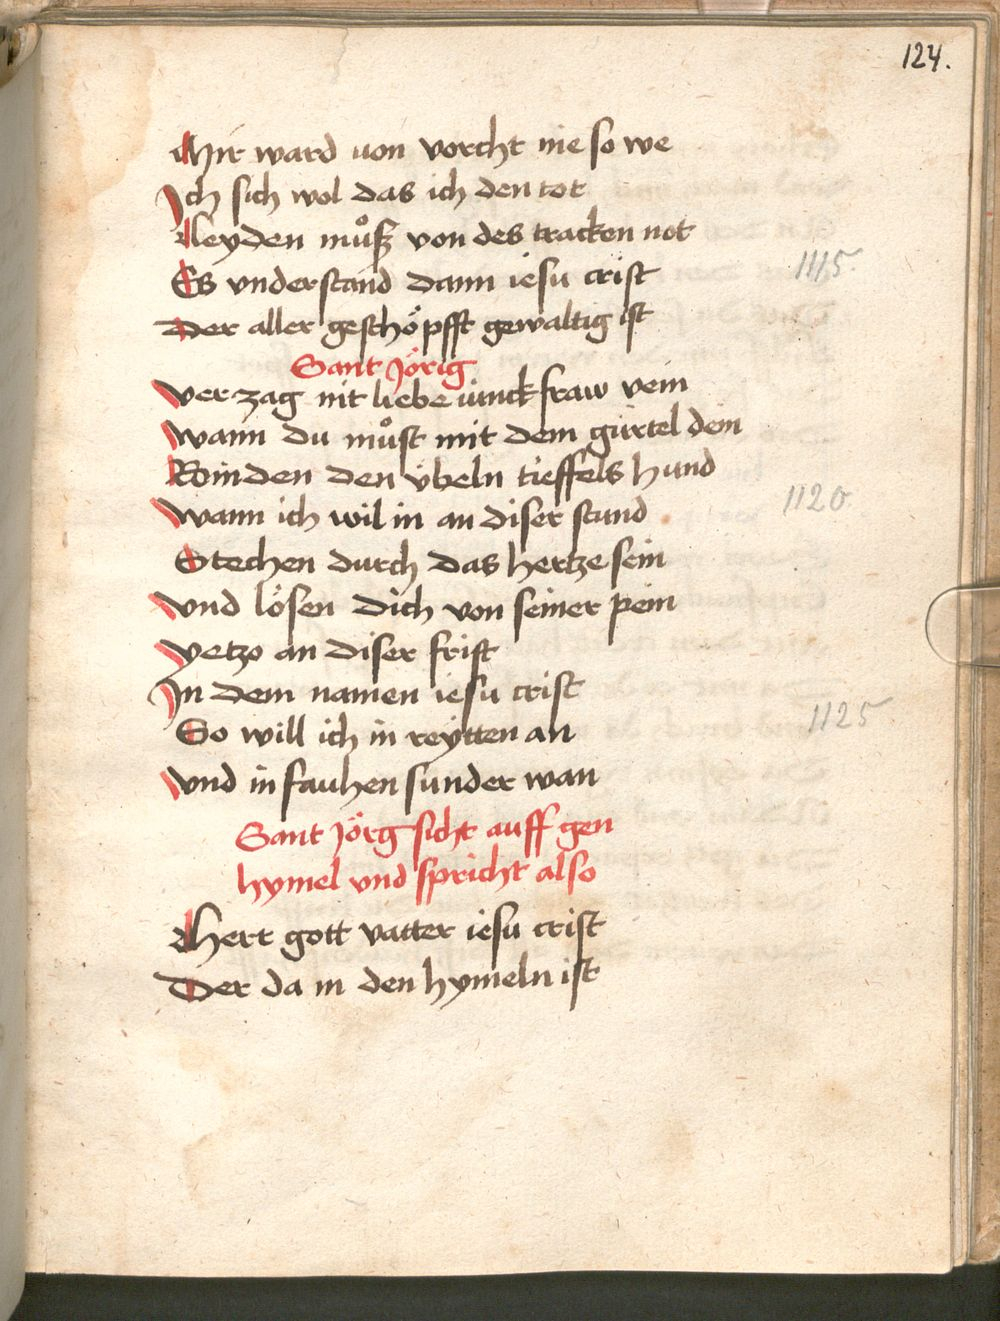 124.
Mir ward uon vorcht nie so we
Ich sich wol das ich den tot
Leyden muͦß von des tracken not
Es vnderstand dann iesu crist
1115
Der aller geschöpfft gewaltig ist
Sant Jörig
Verzag nit liebe iunckfraw vein
Wann du muͦst mit dem gürtel dein
Binden den übeln tieffels hund
Wann ich wil in an diser stund
1120
Stechen durch das hertze sein
Vnd lösen dich von seiner pein
Yetzo an diser frist
In dem namen iesu crist
So will ich in reytten an
1125
Vnd in fauhen sunder wan
Sant Jörg sicht auff gen
hymel vnd spricht also
Herr gott vatter iesu crist
Der da in den hymeln ist